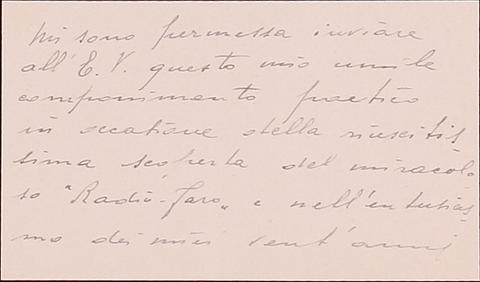 Mi sono permessa inviare
all'E. V. questo mio umile
componimento poetico
in occatione della riuscitis
sima scoperta del miracolo
so "Radio-Faro" e nell'entusias
mo dei miei vent'anni